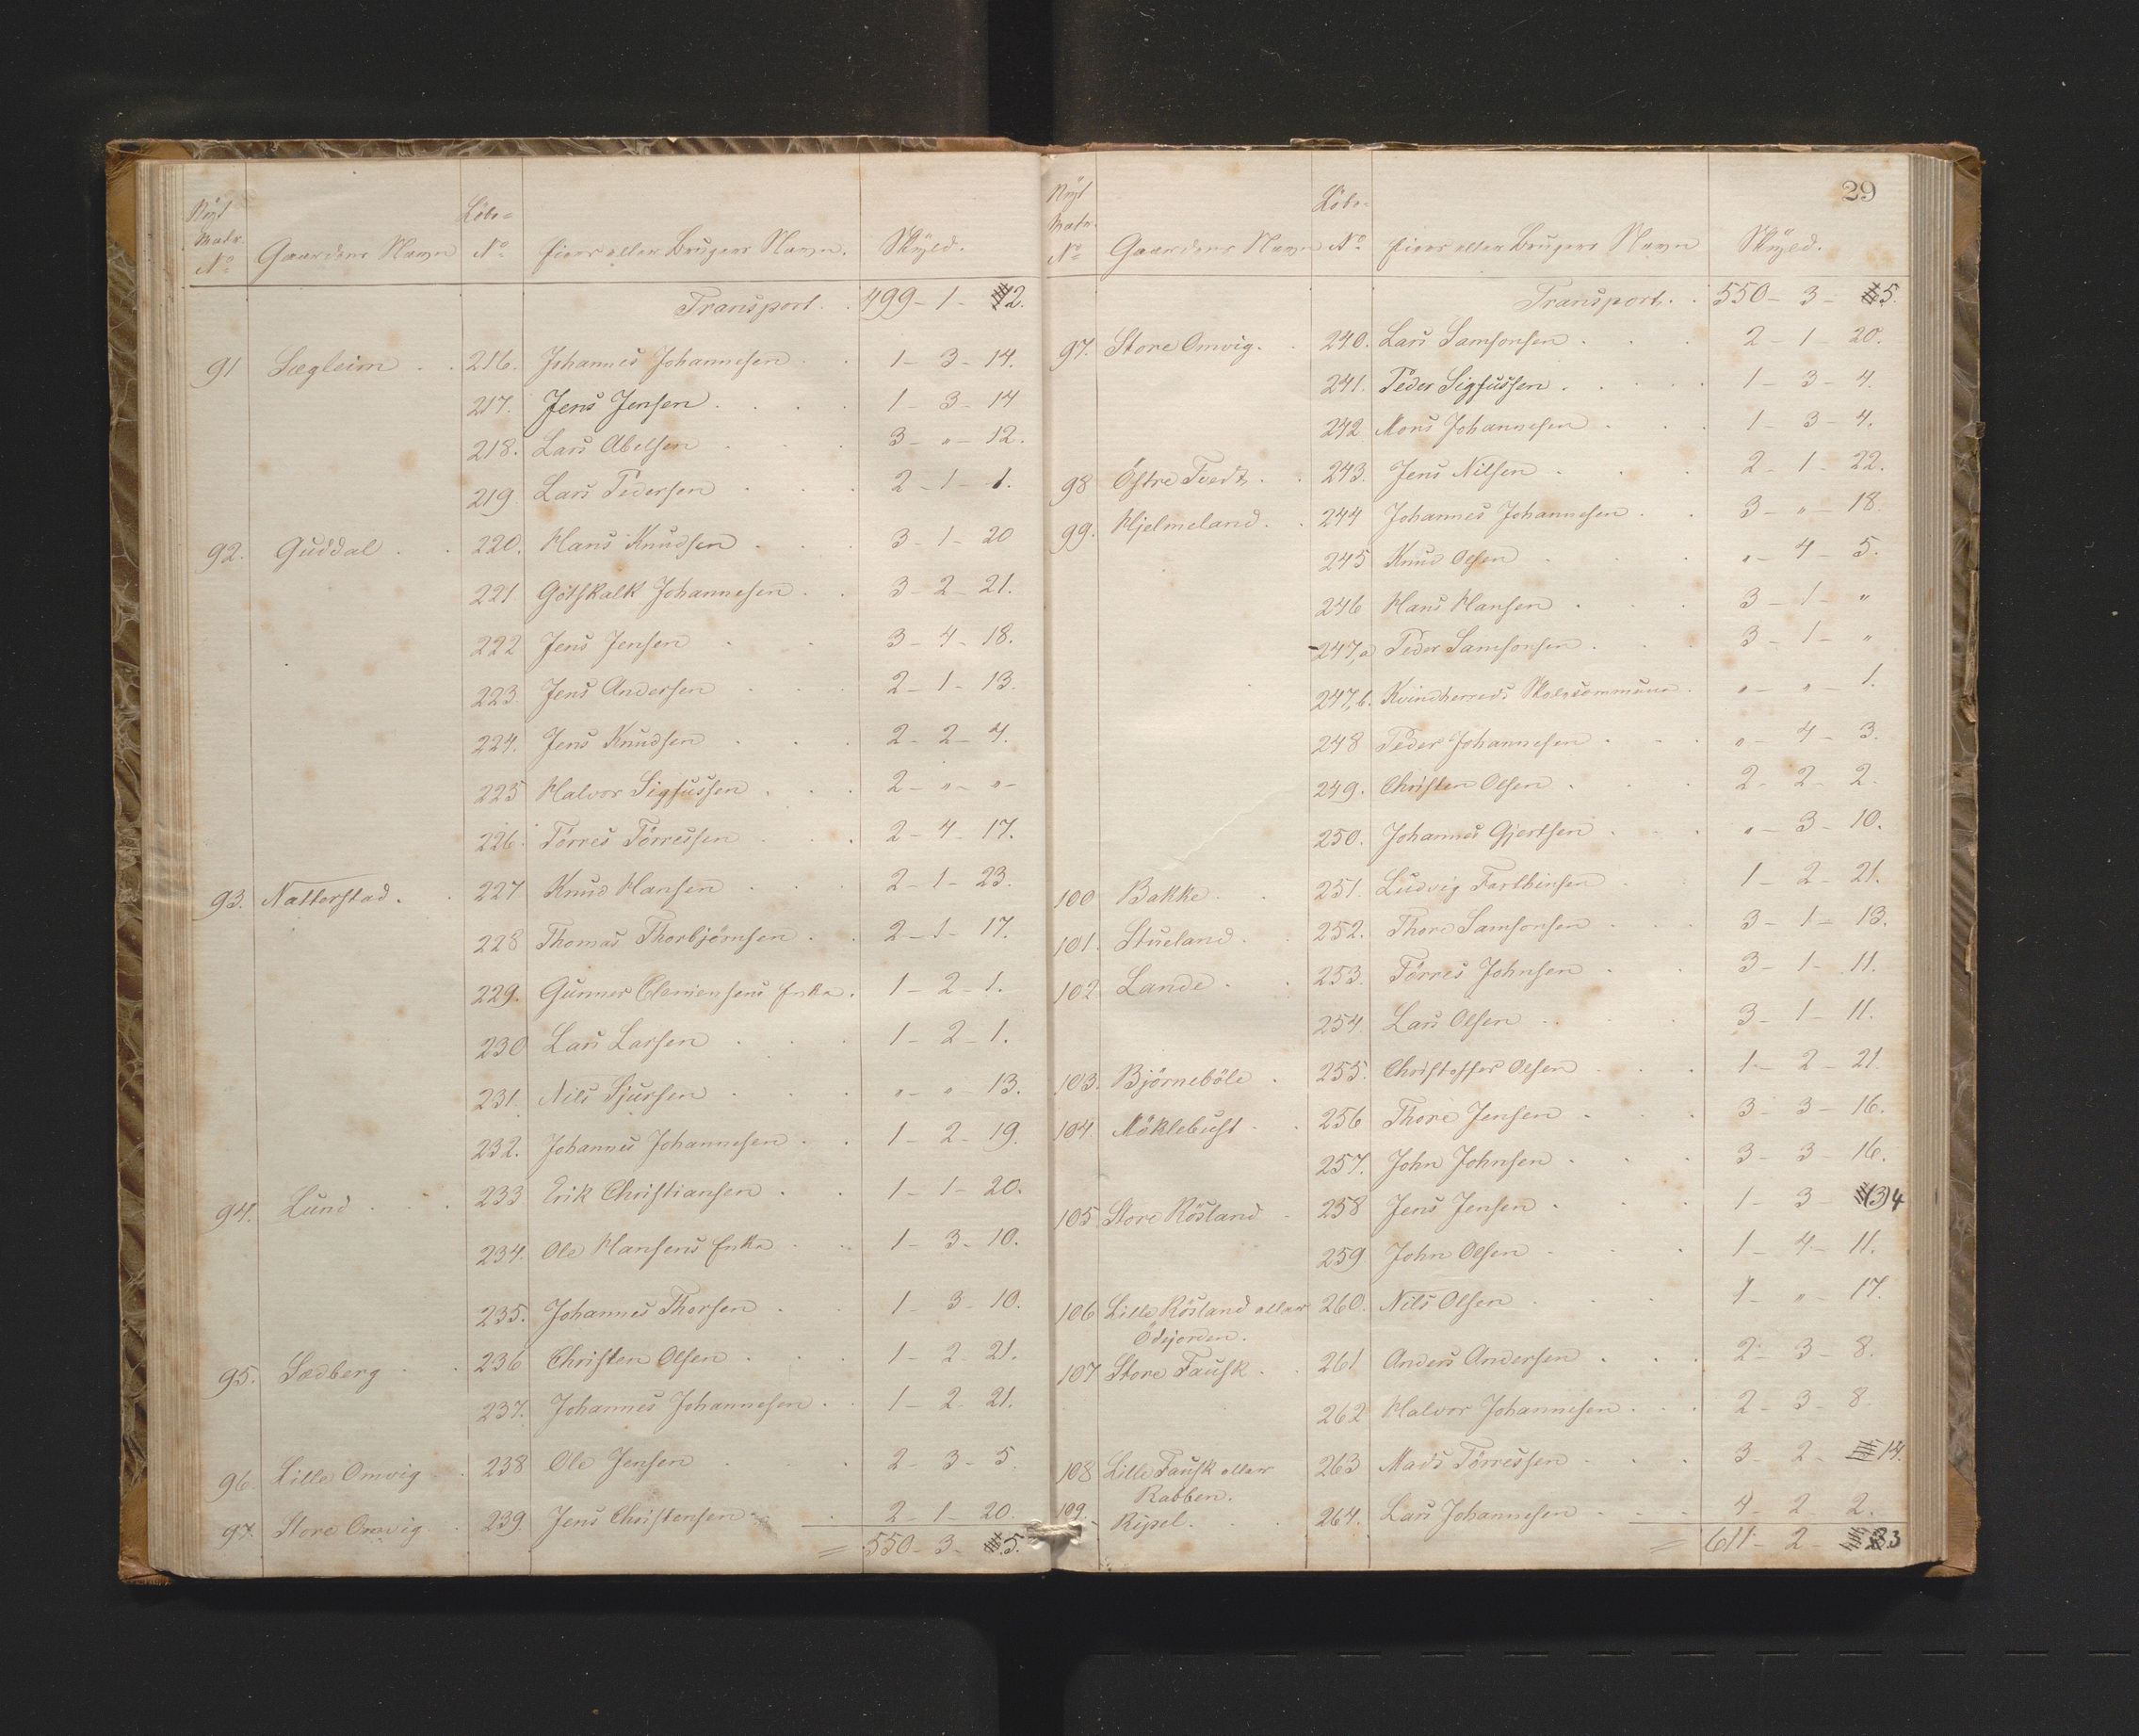 Nyt Matr. No Gaardens Navn Löbe= No Eiers eller Brugers Navn. Skyld.
Transport . . 499 - 1 - 2.
91 Sægleim . . 216. Johannes Johannesen . . 1 - 3 - 14.
217. Jens Jensen . . . . 1 - 3 - 14
218. Lars Abelsen . . . 3 - " - 12.
219 Lars Pedersen . . . 2 - 1 - 1.
92. Guddal . . 220. Hans Knudsen . . . 3 - 1 - 20
221 Götskalk Johannesen . . 3 - 2 - 21.
222 Jens Jensen . . 3 - 4 - 18.
223. Jens Andersen . . . 2 - 1 - 13.
224. Jens Knudsen . . . 2 - 2 - 4.
225 Halvor Sigfussen . . . 2 - " - " -
226. Törres Törressen . . . 2 - 4 - 17.
93. Natterstad . . 227 Knud Hansen . . . 2 - 1 - 23.
228 Thomas Thorbjörnsen . . 2 - 1 - 17.
229. Gunner Clemensens Enke . 1 - 2 - 1.
230 Lars Larsen . . . 1 - 2 - 1.
231. Nils Sjursen . . . " - " 13.
232. Johannes Johannesen . . 1 - 2 - 19.
94. Lund . . . 233 Erik Christiansen . . 1 - 1 - 20.
234. Ole Hansens Enke . . 1 - 3 - 10.
235. Johannes Thorsen . . 1 - 3 - 10.
95. Sædberg . . 236 Christen Olsen . . . 1 - 2 - 21.
237. Johannes Johannesen . . 1 - 2 - 21.
96. Lille Omvig . . 238 Ole Jensen . . . 2 - 3 - 5.
97. Store Omvig . . 239. Jens Christensen . . 2 - 1 - 20.
= 550 - 3 - 5.
29
Nyt Matr. No Gaardens Navn Löbe- No Eiers eller Brugers Navn Skyld.
Transport . . 550 - 3 - 5.
97. Store Omvig . . 240. Lars Samsonsen . . . 2 - 1 20.
241. Peder Sigfussen . . . . 1 - 3 - 4.
242 Mons Johannesen . . . 1 - 3 - 4.
98 Östre Tvedt . . 243. Jens Nilsen . . . 2 - 1 - 22.
99. Hjelmeland . . 244 Johannes Johannesen . . 3 - " - 18.
245 Knud Olsen . . . " - 4 - 5.
246 Hans Hansen . . . 3 - 1 - "
247,a Peder Samsonsen . . . 3 - 1 - "
247,b. Kvindherreds Skolecommune . " - " - 1.
248 Peder Johannesen . . . " - 4 - 3.
249. Christen Olsen . . . 2 - 2 - 2.
250. Johannes Gjertsen . . . " - 3 - 10.
100 Bakke . . 251. Ludvig Farthinsen . . 1 - 2 - 21.
101. Stueland . . 252. Thore Samsonsen . . . 3 - 1 - 13.
102 Lande . . 253. Törres Johnsen . . 3 - 1 - 11.
254. Lars Olsen . . . 3 - 1 - 11.
103. Björneböle . 255. Christoffer Olsen . . . 1 - 2 - 21
104. Möklebust . . 256 Thore Jensen . . . 3 - 3 - 16.
257. John Johnsen . . . 3 - 3 - 16.
105 Store Rösland . 258 Jens Jensen . . . 1 - 3 - (3) 4
259 John Olsen . . . 1 - 4 - 11.
106 Lille Rösland eller 260. Nils Olsen . . . 1 - " - 17.
Ödejorden.
107 Store Fausk . . 261 Anders Andersen . . . 2 - 3 - 8.
262 Halvor Johannesen . . . 2 - 3 - 8.
108 Lille Fausk eller 263 Mads Törressen . . . 3 - 2 - 14.
Rabben.
109. Ripel . . . 264. Lars Johannesen . . . 4 - 2 - 2.
= 611 - 2 - 3